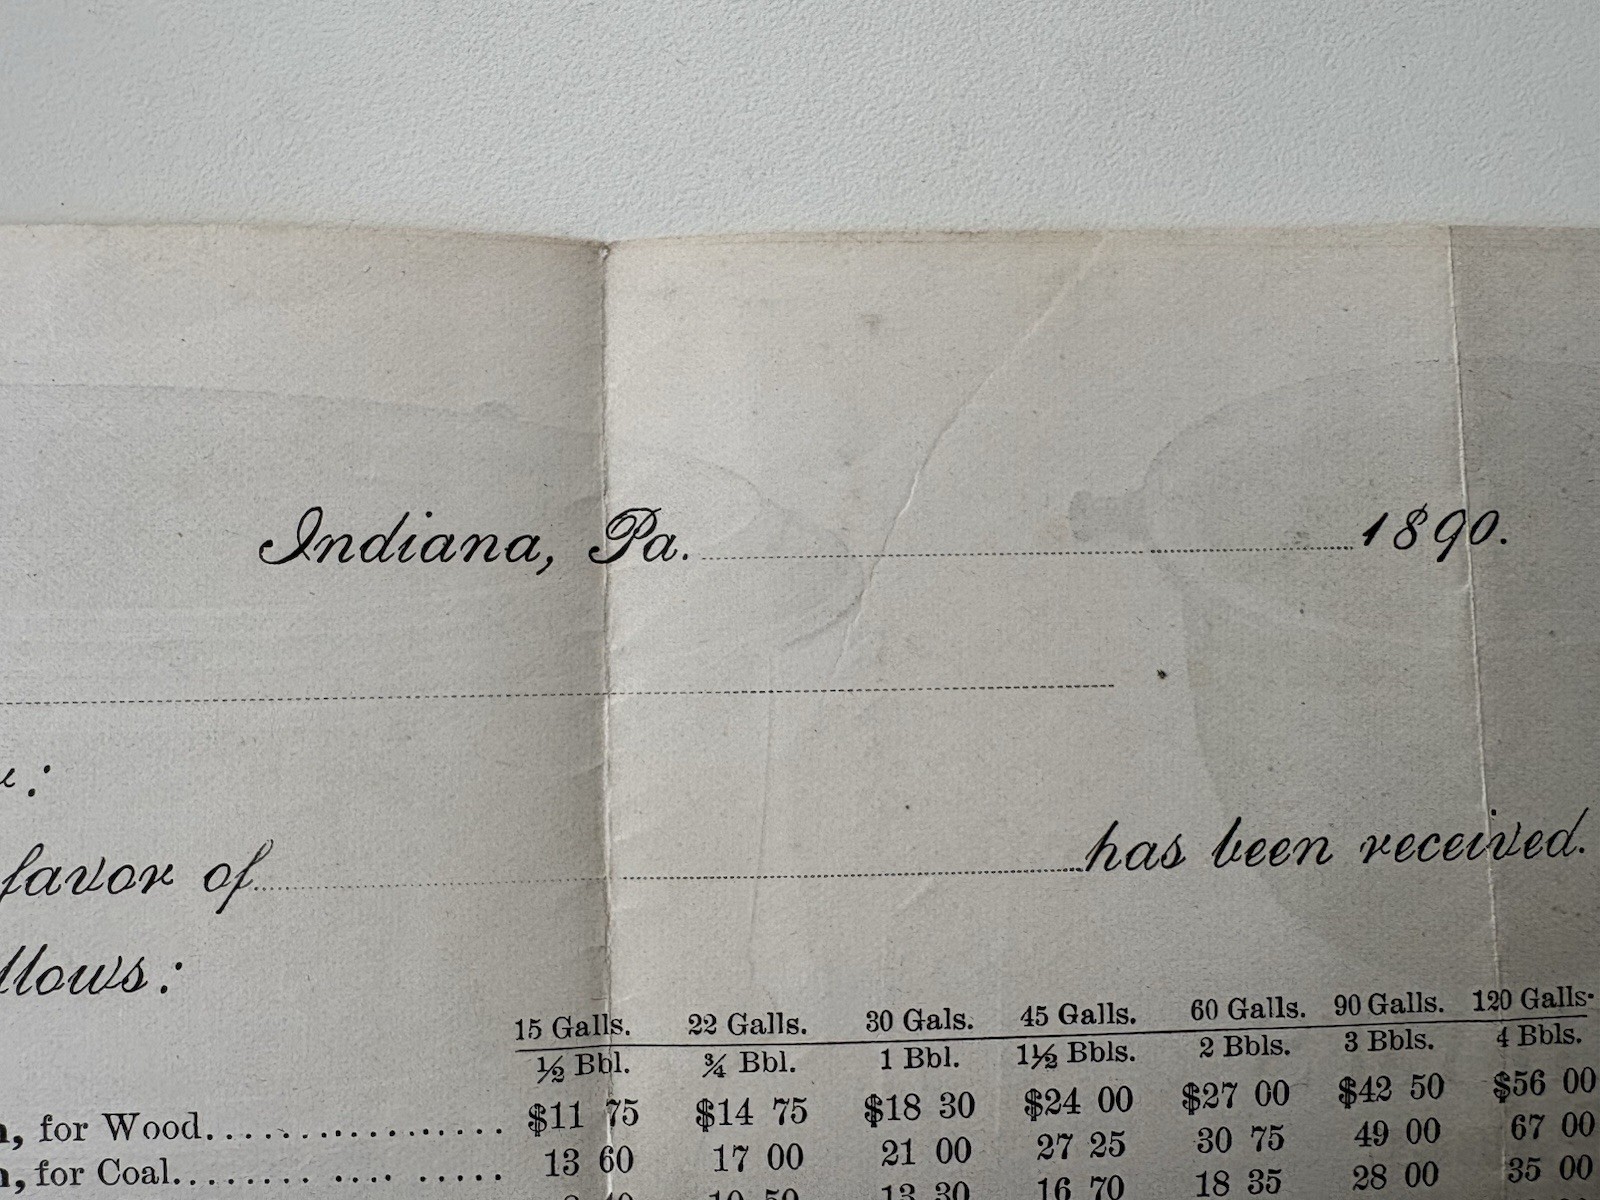 Indiana, Pa. 1890.
favor of has been received.
llows:
15 Galls. 22 Galls. 30 Gals. 45 Galls. 60 Galls. 90 Galls. 120 Galls.
½ Bbl. ¾ Bbl. 1 Bbl. 1½ Bbls. 2 Bbls. 3 Bbls. 4 Bbls.
for Wood $11 75 $14 75 $18 30 $24 00 $27 00 $42 50 $56 00
for Coal 13 60 17 00 21 00 27 25 30 75 49 00 67 00
10 50 13 30 16 70 18 35 28 00 35 00